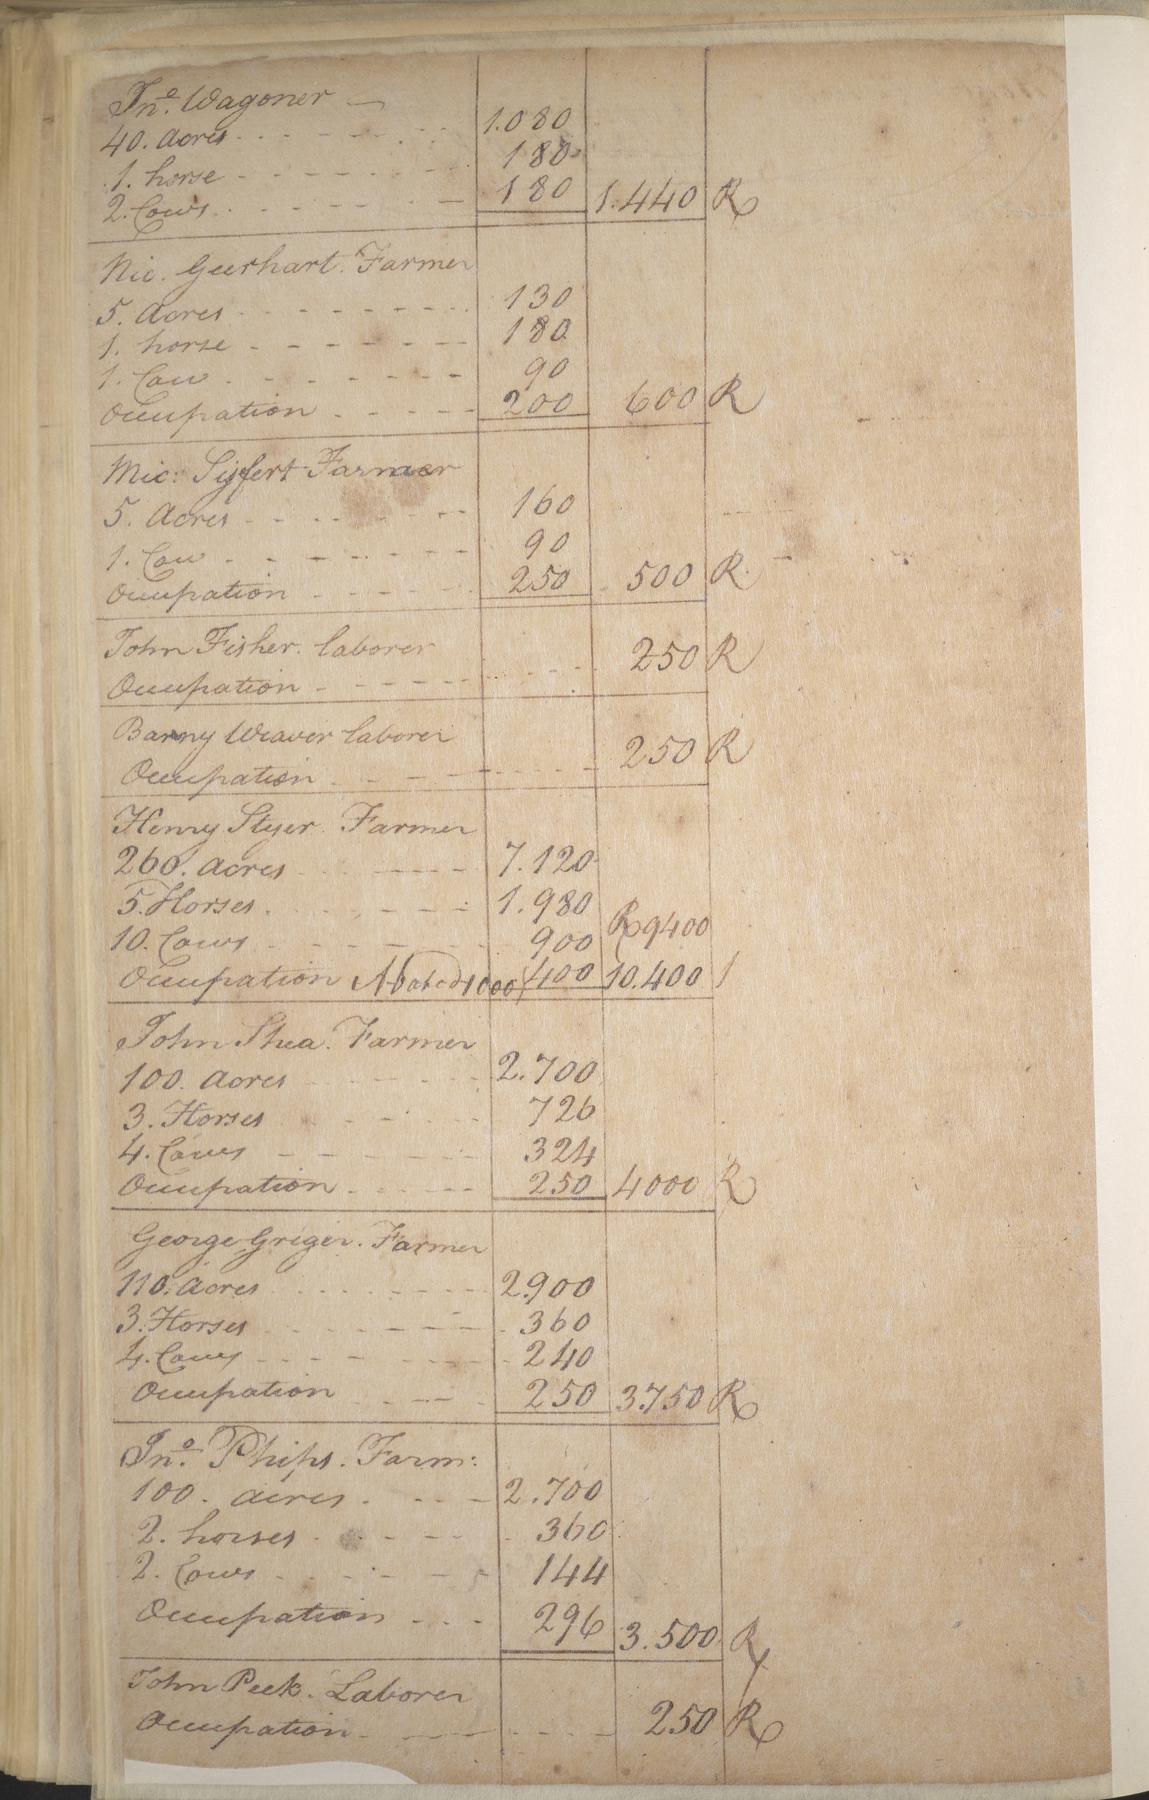 Jno. Wagoner
40. Acres 1.080
1. horse 180
2. Cows 180 1.440 R
Nic. Geerhart. Farmer
5. Acres 130
1. horse 180
1. Cow 90
Occupation 200 600 R
Mic: Syfert Farmer
5. Acres 160
1. Cow 90
Occupation 250 500 R
John Fisher. laborer
Occupation 250 R
Barny Weaver laborer
Occupation 250 R
Henry Styer. Farmer
260. Acres 7.120
5. Horses 1.980
10. Cows 900 R 9400
Occupation Abated 1000 400 10.400
John Shea. Farmer
100. Acres 2.700
3. Horses 726
4. Cows 324
Occupation 250 4000 R
George Griger. Farmer
110. Acres 2.900
3. Horses 360
4. Cows 240
Occupation 250 3.750 R
Jno. Phips. Farm:
100. acres 2.700
2. horses 360
2. Cows 144
Occupation 296 3.500 R
John Peek. Laborer
Occupation 250 R